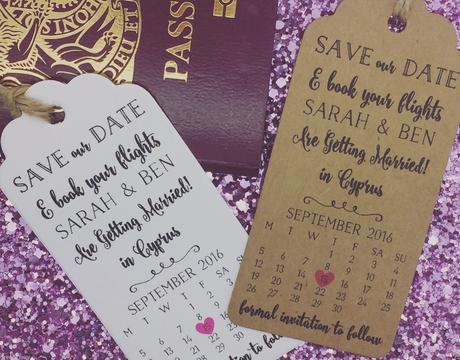 PASS
SAVE our DATE
& book your flights
SARAH & BEN
Are Getting Married!
in Cyprus
SEPTEMBER 2016
M T W T F S SU
formal invitation to follow
SAVE our DATE
& book your flights
SARAH & BEN
Are Getting Married!
in Cyprus
SEPTEMBER 2016
M T W T F S SU
1 2 3 4
5 6 7 8 9 10 11
12 13 14 15 16 17 18
19 20 21 22 23 24 25
26 27 28 29 30
formal invitation to follow